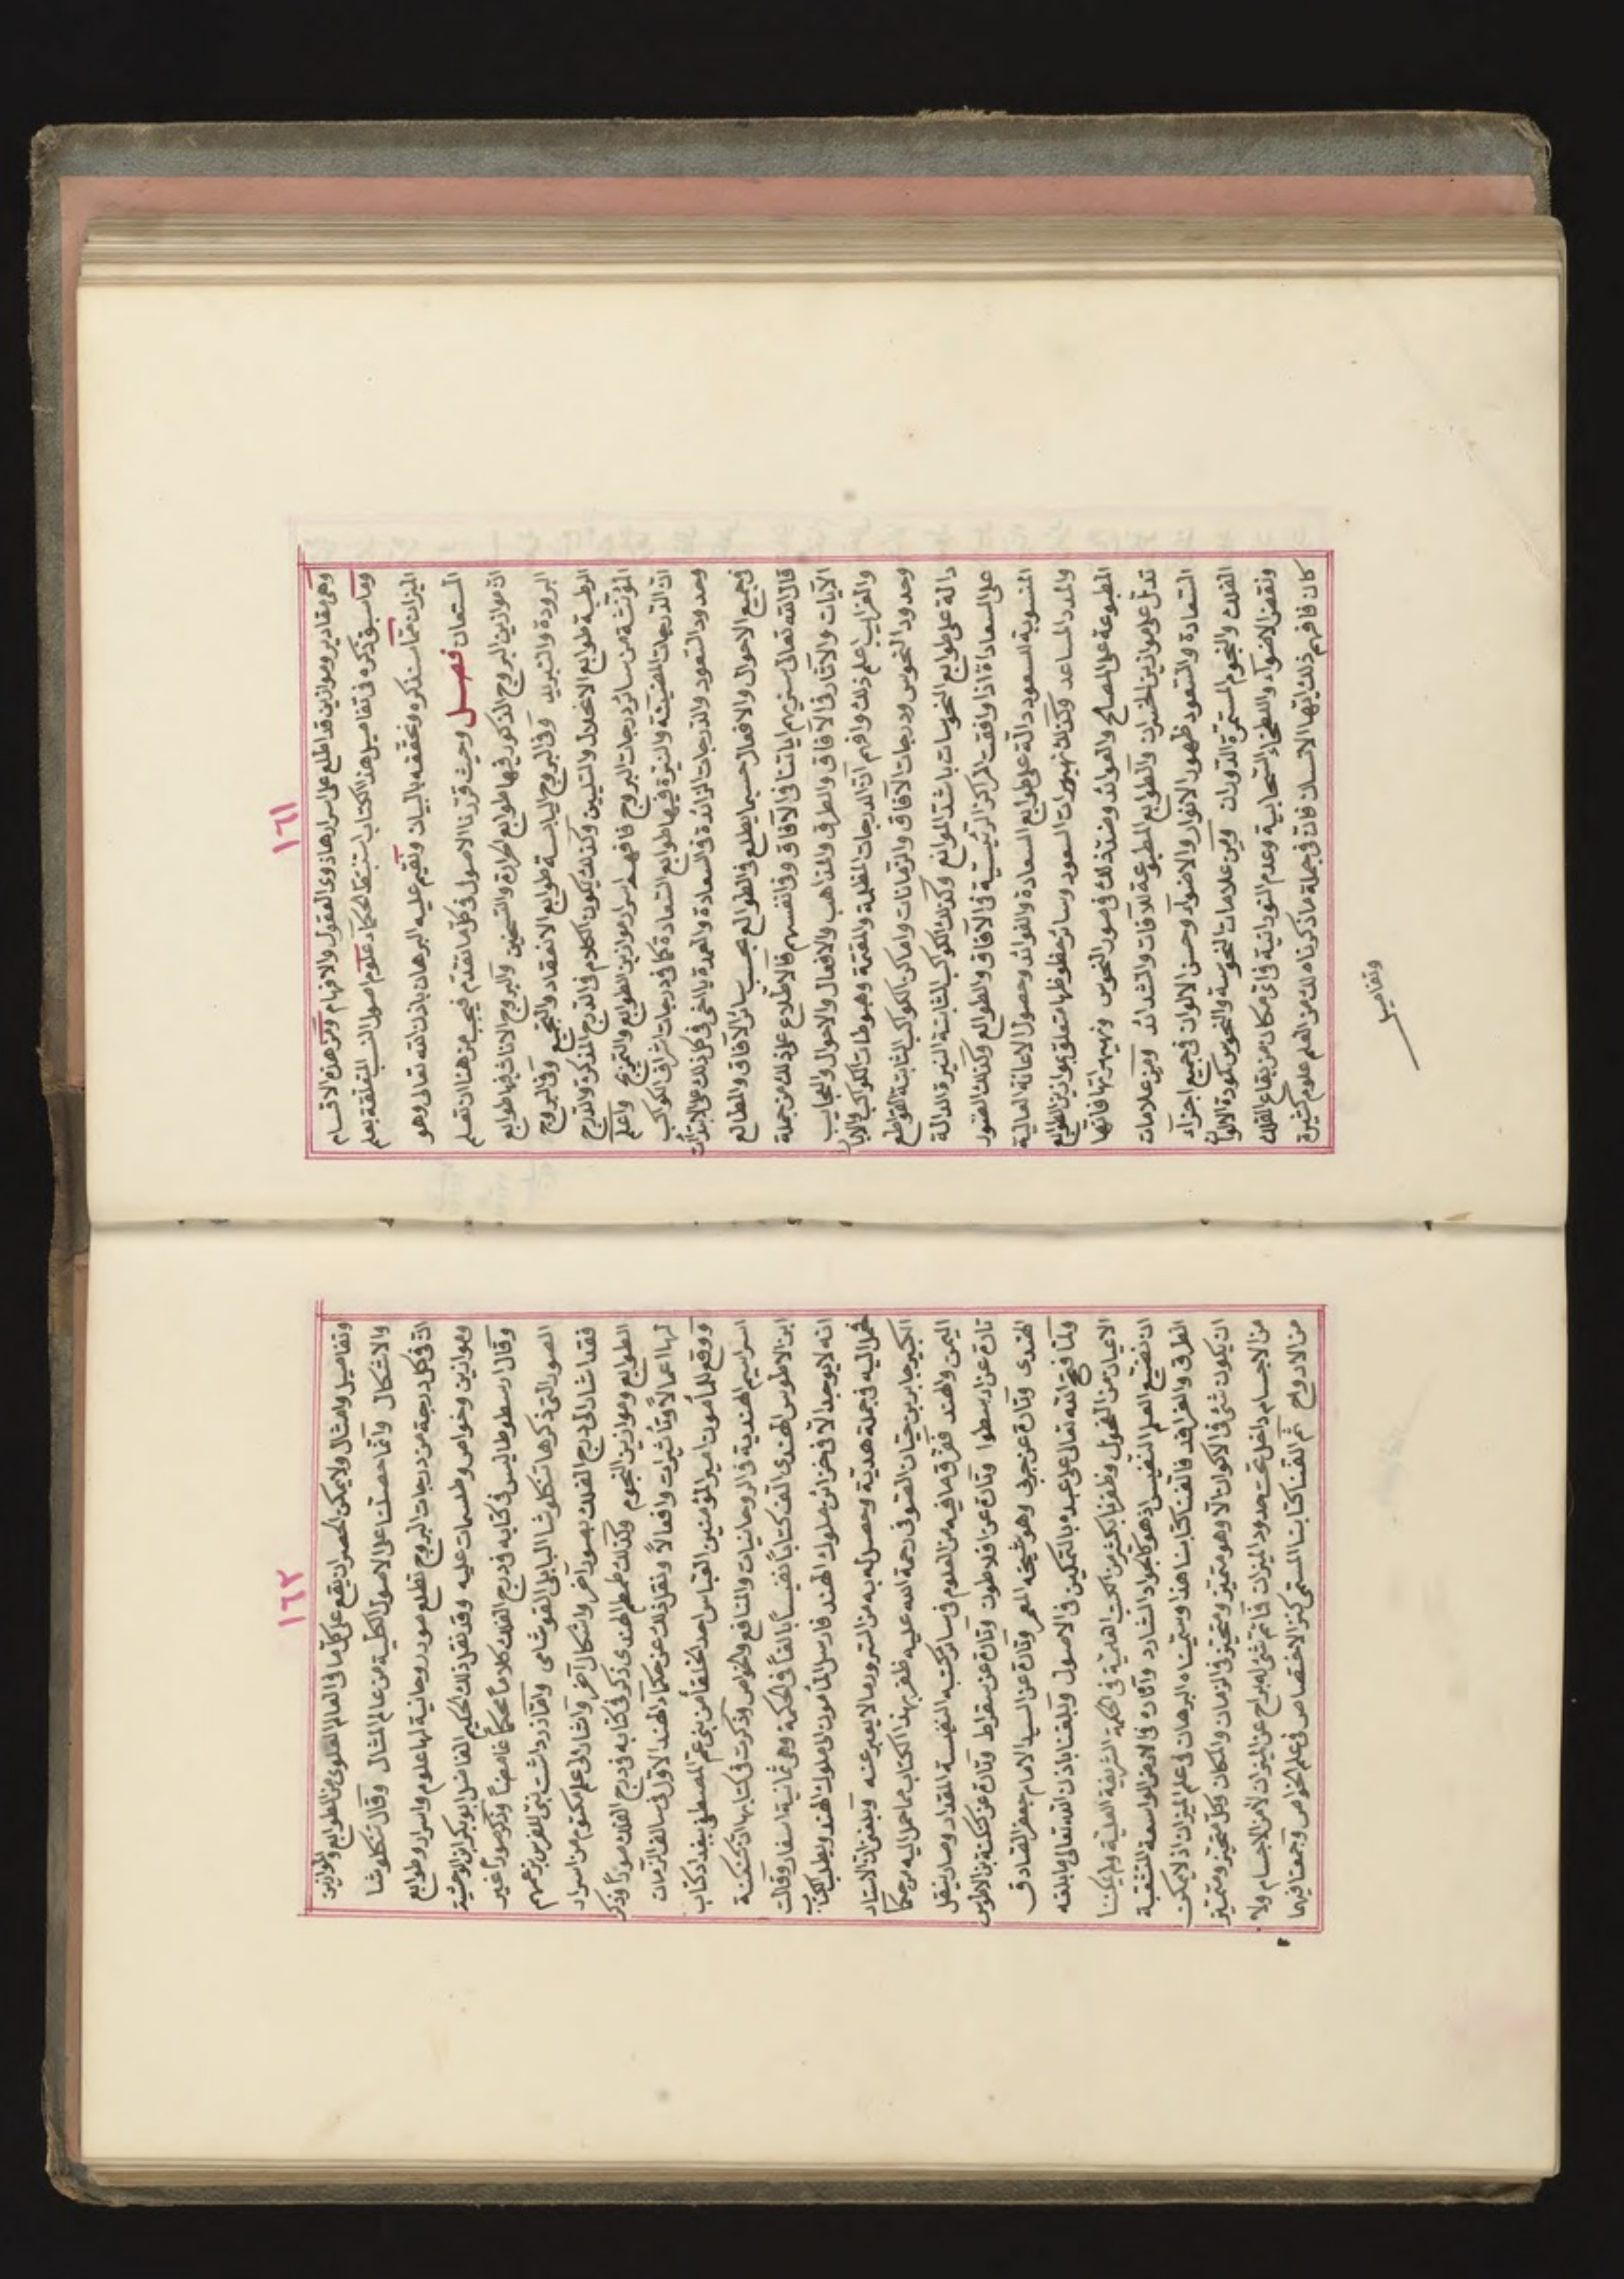 ١٦١
وهي مقادير وموازين قد اطلع على اسرارها ذوى العقول والافهام ومن هذه الاقسام
وما سبق ذكره في تفاصيل هذا الكتاب استنبط الحكماء علوم اصول النسب المتعلقة بعلم
الميزان مما سنذكره ونحققه بالبيان ونقيم عليه البرهان باذن الله تعالى وهو
المستعان فصل وحيث قررنا الاصول في كل ما تقدم فيجب من هنا ان تعلم
ان موازين البروج الذكور فيها طوابع الحرارة والتسخين والبروج الاناث فيها طوابع
البرودة والتبريد وفي البروج اليابسة طوابع الانعقاد والتجميع وفي البروج
الرطبة طوابع الانحلال والتليين وكذلك يكون الكلام في الدرج المذكرة والدرج
المؤنثة من سائر درجات البروج فافهم اسرار موازين الطوابع والتمزيج واعلم
ان الدرجات المضيئة والنيرة فيها طوابع السعادة كما في درجات اشراف الكواكب
وحدود السعود والدرجات الزائدة في السعادة والعمدة يا اخي في كل ذلك على الابتزازت
في جميع الاحوال والافعال حسبما يطلع في الطوالع بحسب سائر الآفاق والمطالع
قال الله تعالى سنريهم اياتنا في الآفاق وفي انفسهم فالاطلاع على ذلك من جملة
الآيات والآثار في الآفاق والطرق والمذاهب والافعال والاحوال والعجايب
والغرايب اعلم ذلك وافهم ان الدرجات المظلمة والمقتمة وهبوطات الكواكب والآبار
وحدود النحوس ودرجات الآفاق والزمانات واماكن الكواكب الثابتة القواطع
دالة على طوابع النحوسات باشد الموانع وكذلك الكواكب الثابتة النيرة الدالة
على السعادات اذا وافقت المراكز الرئيسية في الآفاق والطوالع وكذلك الصور
المنسوبة للسعود دالة على طوابع السعادة والفوائد وحصول الاعانة العالية
والمدد المساعد وكذلك نهبهرات السعود وسائر حظوظها متعلق بموازين الطوابع
المطبوعة على المصالح والعوائد وضد ذلك في صور النحوس ونهبهراتها فانها
تدل على موازين الخسران والطوابع المطبوعة للآفات والشدائد ومن علامات
السعادة والسعود ظهور الانوار والاضواء وحسن الالوان في جميع اجزاء
الفلك والنجوم المستمرة الدوران ومن علامات النحوسة والنحوس كمودة الالوان
ونقص الاضواء واللطخاء السحابية وعدم النورانية في اى مكان من بقاع الفلك
كان فافهم ذلك ايها الانسان فان في جملة ما ذكرناه لك من العلم علوم كثيرة
وتفاصيل
١٦٢
وتفاصيل وامثال ولا يمكن الحصر ان يقع على كلما في العالم العلوى من الطوابع والموازين
والاشكال وانما حصلنا على الاصول الكلية من عالم المثال وقال تنكلوشا
ان في كل درجة من درجات البروج تطلع صور روحانية لها علوم واسرار وطوابع
وموازين وخواص وطلسمات عليه وقد نقل ذلك الحكيم الفاضل ابو بكر ابن الوحشية
وقال ارسطوطاليس في كتابه في درج الفلك كلاما محكما غامضا وذكر صورا غير
الصور التي ذكرها تنكلوشا البابلي القوشاني واما زرداشت نبى الفرس بزعمهم
فقد اشار الى درج الفلك بصور آخر واشكال آخر واشار الى علم مكتوم من اسرار
الطوابع وموازين النجوم وكذلك طمطم الهندى ذكر في كتابه في درج الفلك صورا وذكر
لها اعمالا وتأثيرات وافعالا ونقل ذلك عن حكماء الهند الاول في سالف الزمان
ووقع للمأمون امير المؤمنين العباس احد الخلفاء من بنى عم المصطفى ببغداد كتاب
اسراسيم الهندية في الروحانيات والمنافع والخواص وذكرت في كتابها ان كنكنة
ابن الاطوس الهندى الف كتابا نفيسا بالغا في الحكمة وهي ثمانية اسفار وقالت
انه لا يوجد الا في خزائن ملوك الهند فارسل المأمون الى ملوك الهند ويطلب الكتاب
فحمل اليه في جملة هدية وحصل له به من السرور ما لا يعبر عنه وبلغنى ان الاستاد
الكبير جابر بن حيان الصوفي رحمة الله عليه ظفر بهذا الكتاب مما حمل اليه من حكما
اليمن والهند ففرق ما فيه من العلوم في سائر كتبه النفيسة المقدار وصار ينقل
تارة عن ارسطوا وتارة عن افلاطون وتارة عن سقراط وتارة عن كنكنة بن الاطوس
الهندى وتارة عن حربى وهو شيخه المعمر وتارة عن السيد الامام جعفر الصادق
ولما فتح الله تعالى على عبده بالتمكين في الاصول وبلغنا باذن الله تعالى ما بلغه
الاعيان من الفحول وظفرنا بكثير من الكتب اهلية في الحكمة الشريفة العلية ولم يمكننا
ان نضيع العلم النفيس اذ هو كالجواد الشارد واثاره في الارض الواسعة المتشعبة
الطرق والفراقد فالفنا كتابنا هذا وسميناه البرهان في علم الميزان اذ لا يمكن
ان يكون شئ في الاكوان الا وهو متميز ومتحيز في الزمان والمكان وكل متحيز ومتميز
من الاجسام داخل تحت حدود الميزان فما تم شئ له براح عن الميزان لا من الاجسام ولا
من الارواح ثم الفنا كتابنا المسمى كنز الاختصاص في علم الخواص وجمعنا فيهما